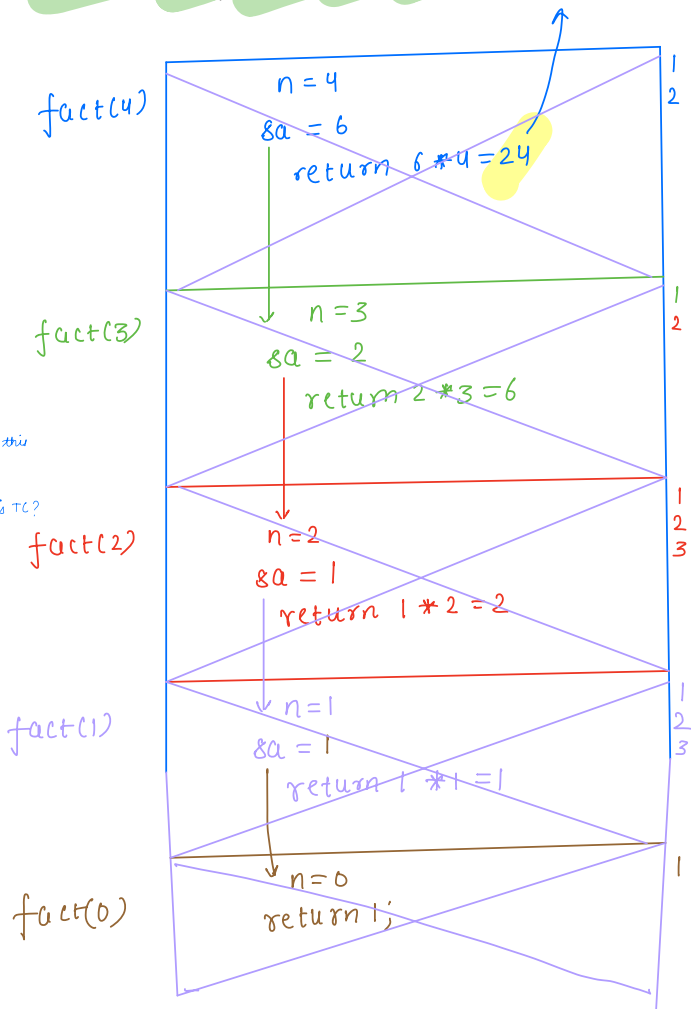 fact(4)
n = 4
sa = 6
return 6 * 4 = 24
1
2
fact(3)
n = 3
sa = 2
return 2 * 3 = 6
1
2
this
TC?
fact(2)
n = 2
sa = 1
return 1 * 2 = 2
1
2
3
fact(1)
n = 1
sa = 1
return 1 * 1 = 1
1
2
3
fact(0)
n = 0
return 1;
1